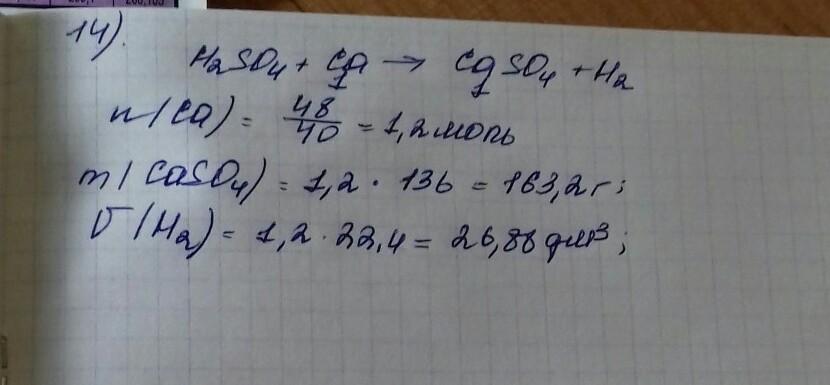 14).
H₂SO₄ + Ca → CaSO₄ + H₂
1 1
n(Ca) = 48/40 = 1,2 моль
m(CaSO₄) = 1,2 · 136 = 163,2 г;
V(H₂) = 1,2 · 22,4 = 26,88 дм³;